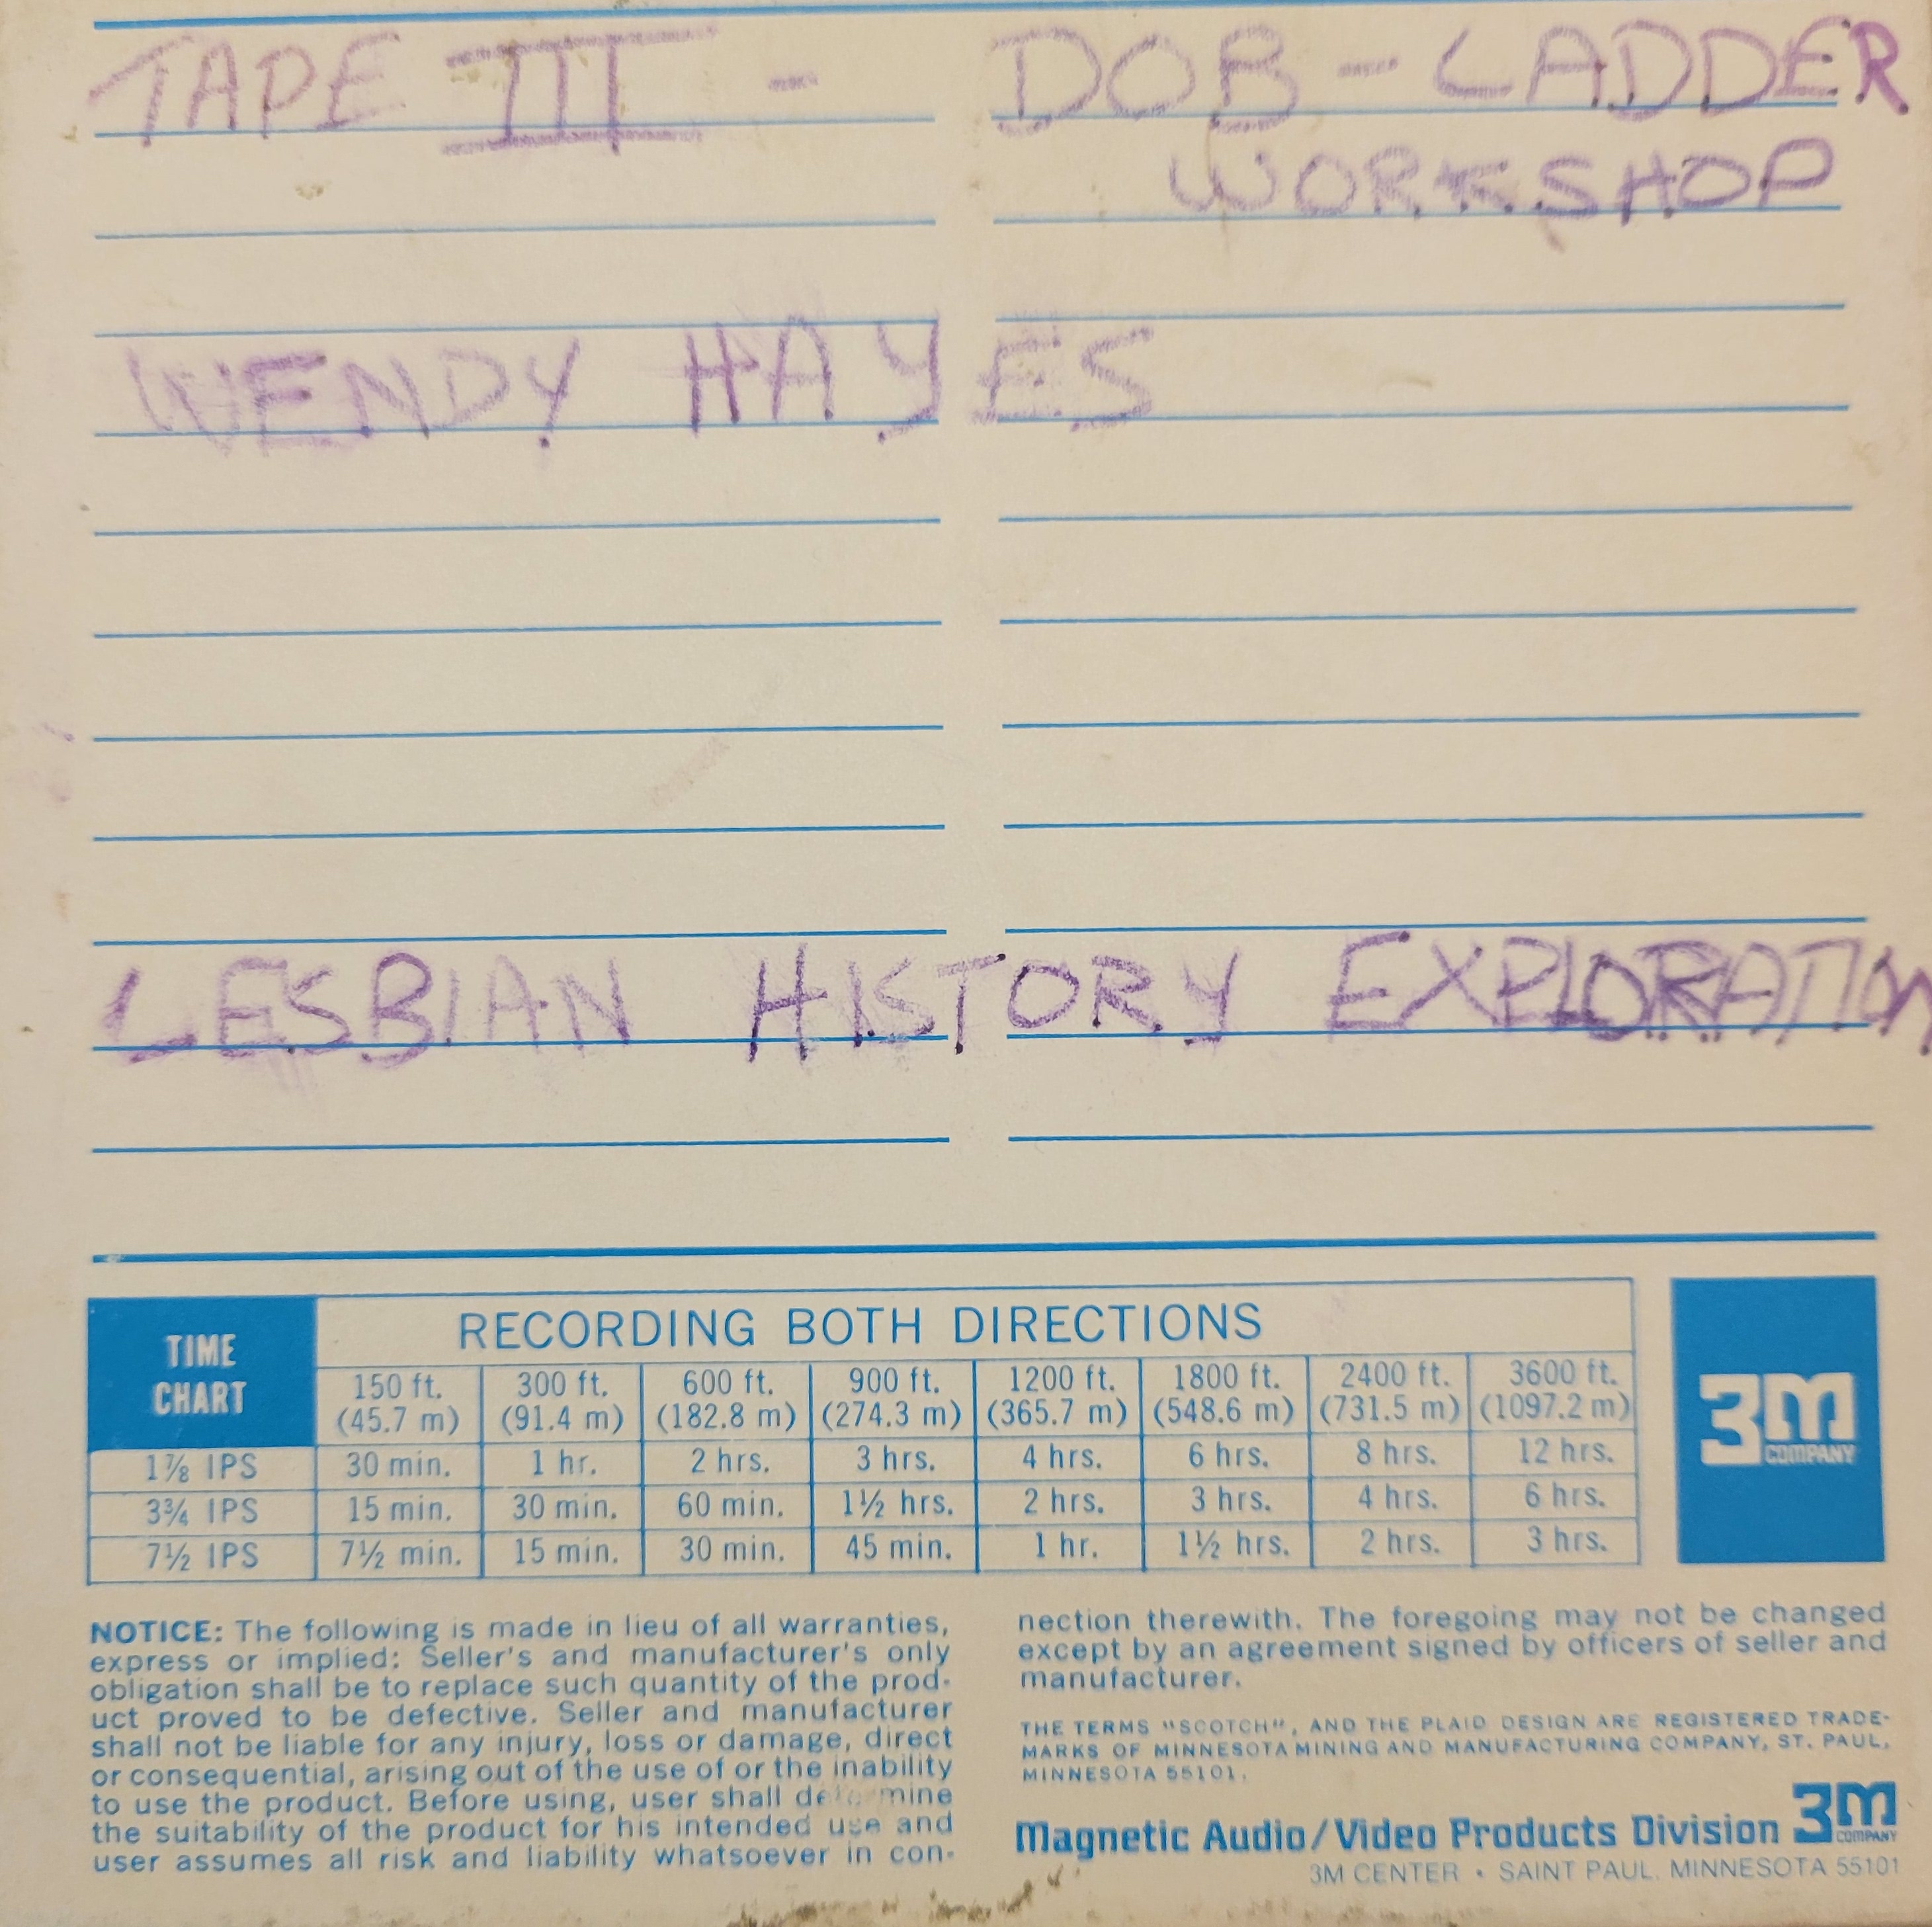 TAPE III - DOB - LADDER
WORKSHOP
WENDY HAYES
LESBIAN HISTORY EXPLORATION
TIME
CHART
RECORDING BOTH DIRECTIONS
150 ft. 300 ft. 600 ft. 900 ft. 1200 ft. 1800 ft. 2400 ft. 3600 ft.
(45.7 m) (91.4 m) (182.8 m) (274.3 m) (365.7 m) (548.6 m) (731.5 m) (1097.2 m)
1⅞ IPS 30 min. 1 hr. 2 hrs. 3 hrs. 4 hrs. 6 hrs. 8 hrs. 12 hrs.
3¾ IPS 15 min. 30 min. 60 min. 1½ hrs. 2 hrs. 3 hrs. 4 hrs. 6 hrs.
7½ IPS 7½ min. 15 min. 30 min. 45 min. 1 hr. 1½ hrs. 2 hrs. 3 hrs.
3M
COMPANY
NOTICE: The following is made in lieu of all warranties,
express or implied: Seller's and manufacturer's only
obligation shall be to replace such quantity of the prod-
uct proved to be defective. Seller and manufacturer
shall not be liable for any injury, loss or damage, direct
or consequential, arising out of the use of or the inability
to use the product. Before using, user shall determine
the suitability of the product for his intended use and
user assumes all risk and liability whatsoever in con-
nection therewith. The foregoing may not be changed
except by an agreement signed by officers of seller and
manufacturer.
THE TERMS "SCOTCH", AND THE PLAID DESIGN ARE REGISTERED TRADE-
MARKS OF MINNESOTA MINING AND MANUFACTURING COMPANY, ST. PAUL,
MINNESOTA 55101.
Magnetic Audio/Video Products Division 3M
COMPANY
3M CENTER • SAINT PAUL, MINNESOTA 55101